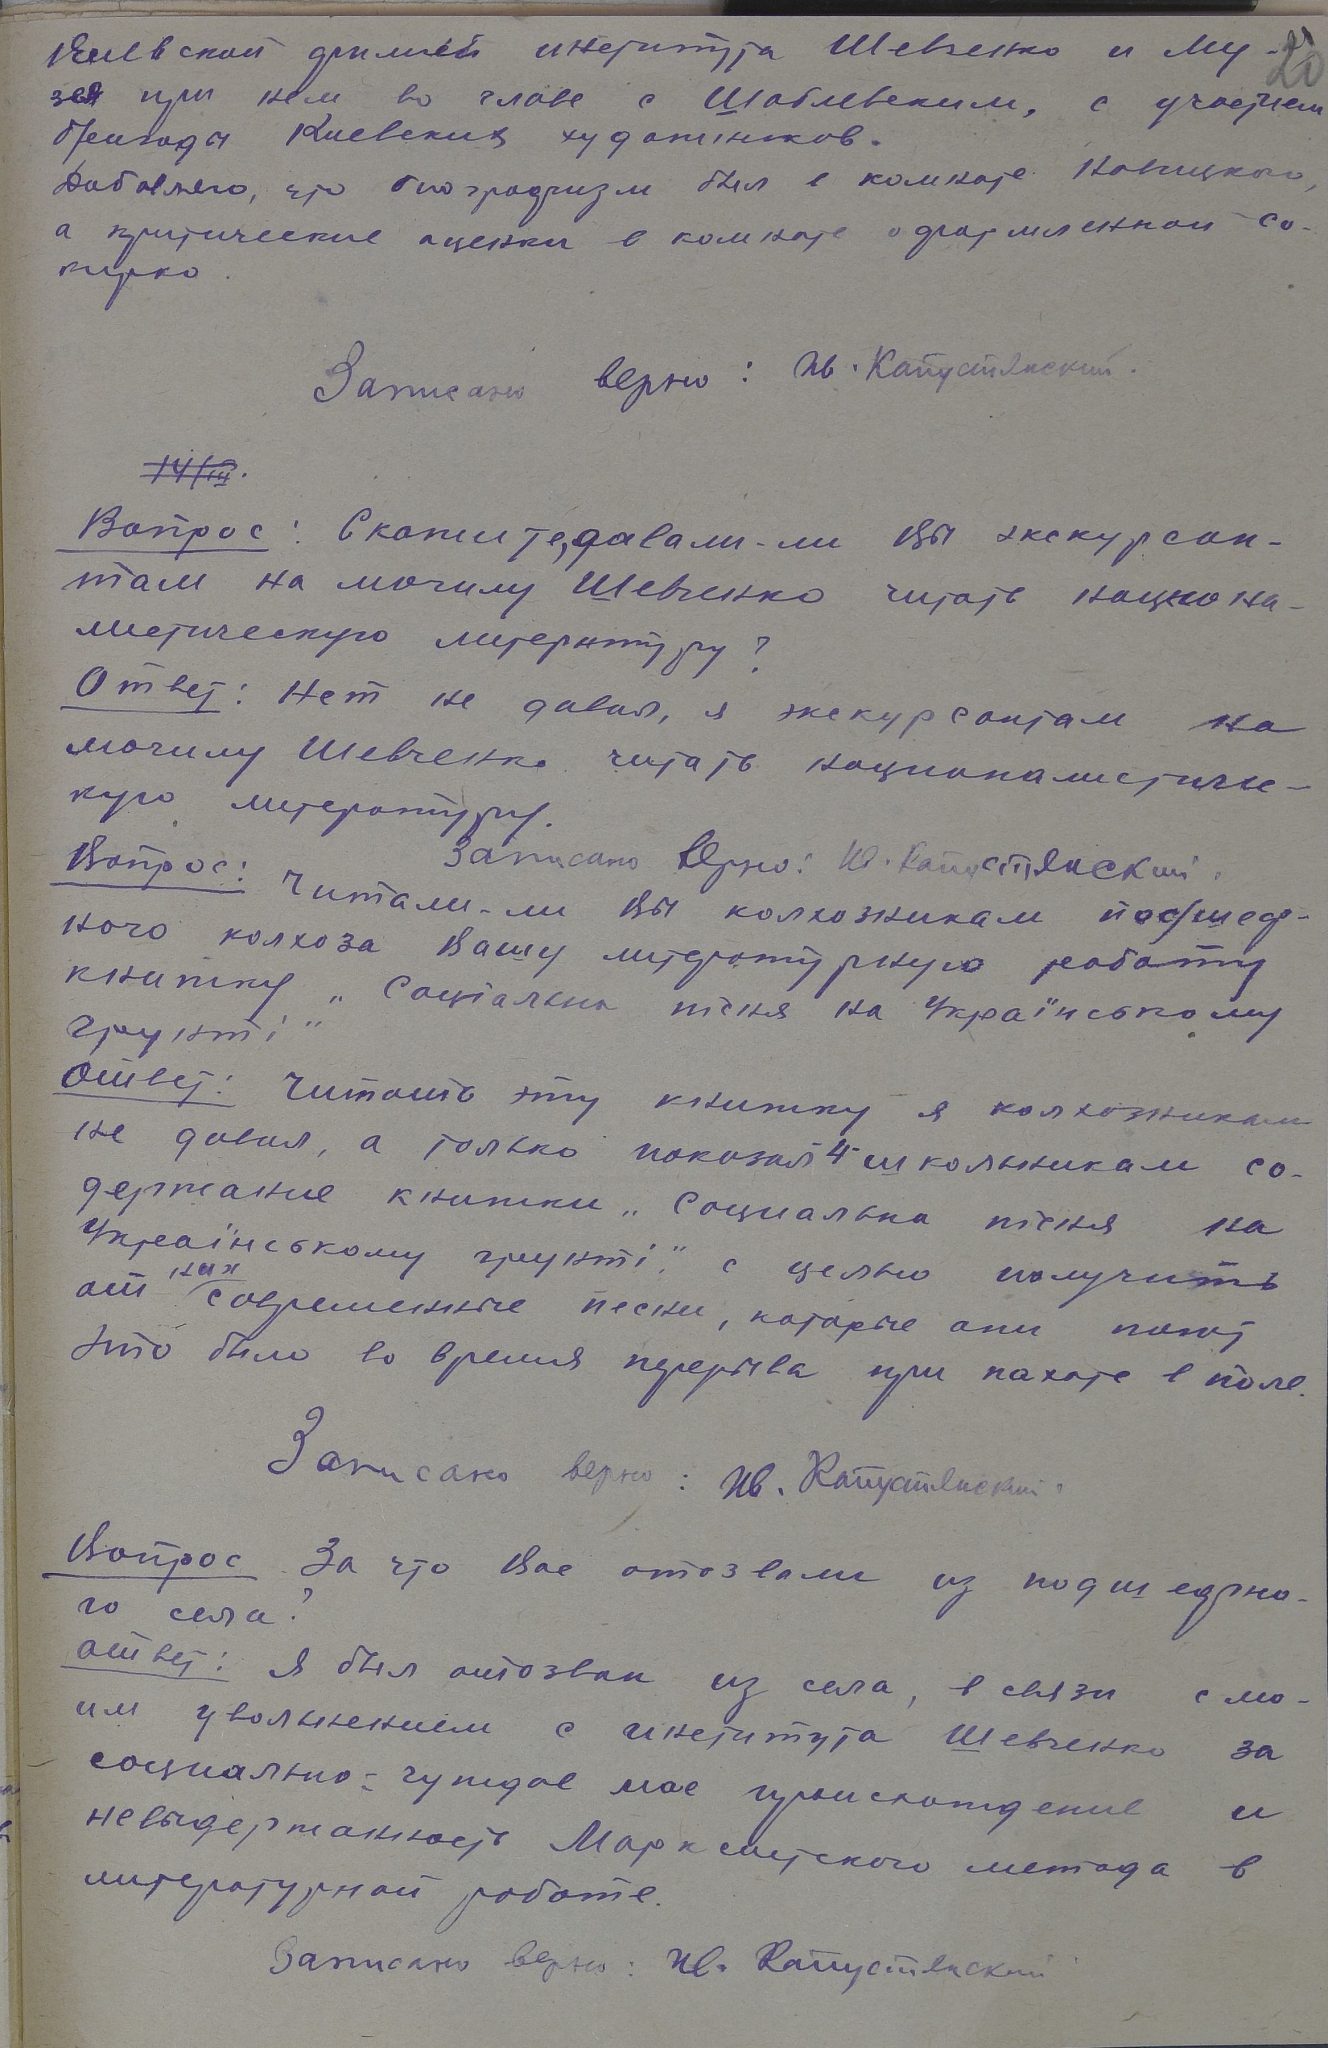 20
Киевской филией института Шевченко и Му-
зея при нем во главе с Шаблевским, с участием
бригады Киевских художников.
Добавляю, что биографизм был в комнате Новицкого,
а критические оценки в комнате оформленной Со-
кирко.
Записано верно: Ив. Капустянский.
14/III.
Вопрос: Скажите, давали-ли Вы экскурсан-
там на могилу Шевченко читать национа-
листическую литературу?
Ответ: Нет не давал, я экскурсантам на
могилу Шевченко читать националистиче-
кую литературу.
Записано верно: Ив. Капустянский.
Вопрос: Читали-ли Вы колхозникам подшеф-
ного колхоза Вашу литературную работу
книжку „Соціальна пісня на Українському
грунті"
Ответ: Читать эту книжку я колхозникам
не давал, а только показал 4 школьникам со-
держание книжки „Социальна пісня на
Українському грунті." с целью получить
от них современные песни, которые они поют
Это было во время перерыва при пахоте в поле.
Записано верно: Ив. Капустянский.
Вопрос За что Вас отозвали из подшефно-
го села?
Ответ: Я был отозван из села, в связи с мо-
им увольнением с института Шевченко за
социально-чуждое мое происхождение и
невыдержанность Марксистского метода в
литературной работе.
Записано верно: Ив. Капустянский